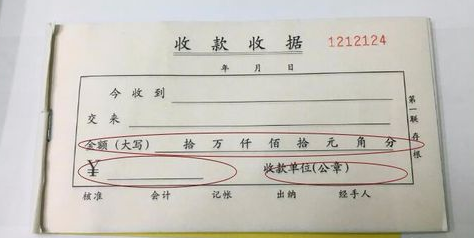 收款收据 1212124
年 月 日
今收到
交来
金额(大写) 拾 万 仟 佰 拾 元 角 分
¥ 收款单位(公章)
核准 会计 记帐 出纳 经手人
第一联 存根